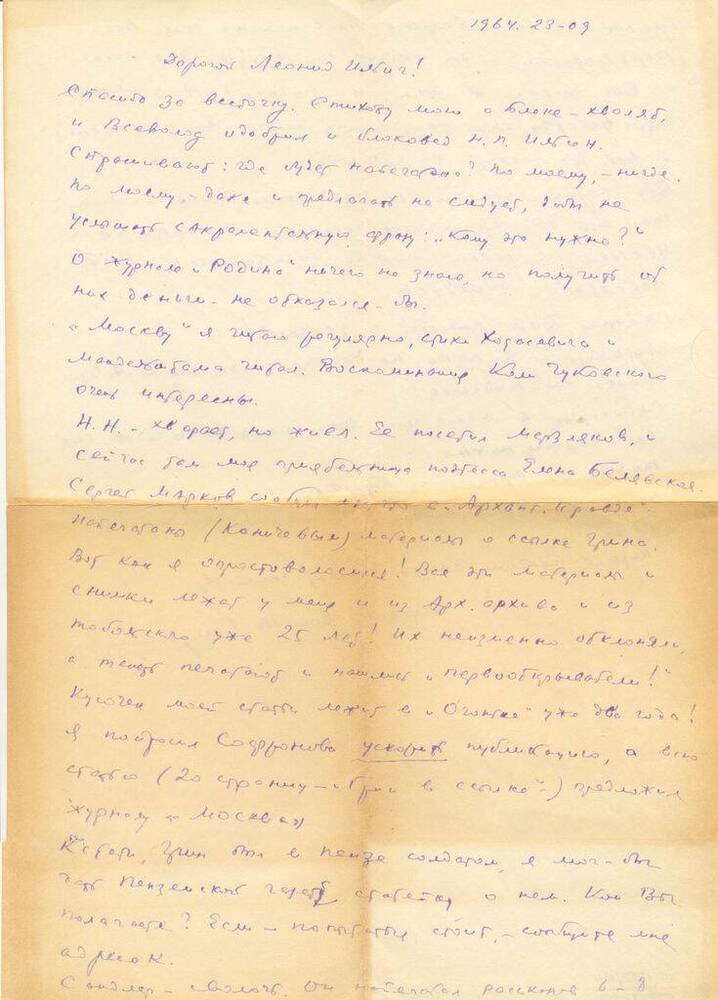 1964. 23-09
Дорогой Леонид Ильич!
Спасибо за весточку. Стихову мою о Блоке - хвалят,
и Всеволод одобрил и блоковед Н. П. Ильин.
Спрашивают: где будет напечатано? По моему, - нигде.
По моему, - даже и предлагать не следует, чтобы не
услышать сакраментальную фразу: „Кому это нужно?"
О журнале „Родина" ничего не знаю, но получить от
них деньги - не отказался - бы.
„Москву" я читаю регулярно, стихи Ходасевича и
Мандельштама читал. Воспоминания Ник Чуковского
очень интересны.
Н.Н. - хворает, но живёт. Её посетил Мерзляков, и
сейчас там моя поэтесса Елена Белявская.
Сергей Марков что в „Арханг. правде"
напечатаны (Коничевым) материалы о ссылке Грина.
Вот как я опростоволосился! Все эти материалы и
снимки лежат у меня и из Арх. архива и из
тобольского уже 25 лет! Их неизменно отклоняли,
а теперь печатают и нашлись „первооткрыватели!"
Кусочек моей статьи лежит в „Огоньке" уже два года!
Я попросил Софронова ускорить публикацию, а всю
статью (20 страниц - „Грин в ссылке" -) предложил
журналу „Москва"
Кстати, Грин был в Пензе солдатом, я мог-бы
дать Пензенской газете статейку о нем. Как Вы
полагаете? Если - попытаться стоит, - сообщите мне
адресок.
Сандлер - сволочь. Он напечатал рассказов 6 - 8